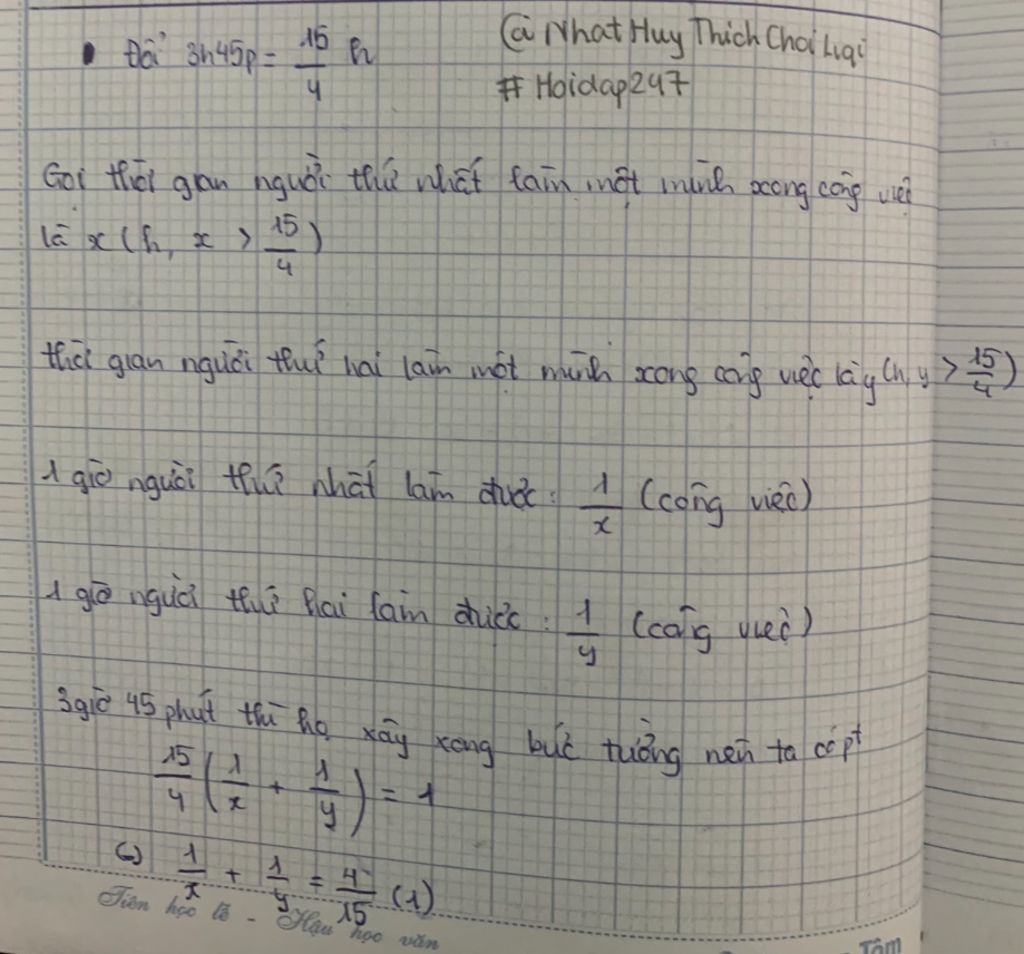 Đổi 3h45p = 15/4 h
@ NhatHuyThichChoiLiqi
# Hoidap247
Gọi thời gian người thứ nhất làm một mình xong công việc
là x (h, x > 15/4)
thời gian người thứ hai làm một mình xong công việc là y (h, y > 15/4)
1 giờ người thứ nhất làm được : 1/x (công việc)
1 giờ người thứ hai làm được : 1/y (công việc)
3 giờ 45 phút thì họ xây xong bức tường nên ta có pt
15/4 (1/x + 1/y) = 1
(=) 1/x + 1/y = 4/15 (1)
Tiên học lễ - Hậu học văn
Tâm